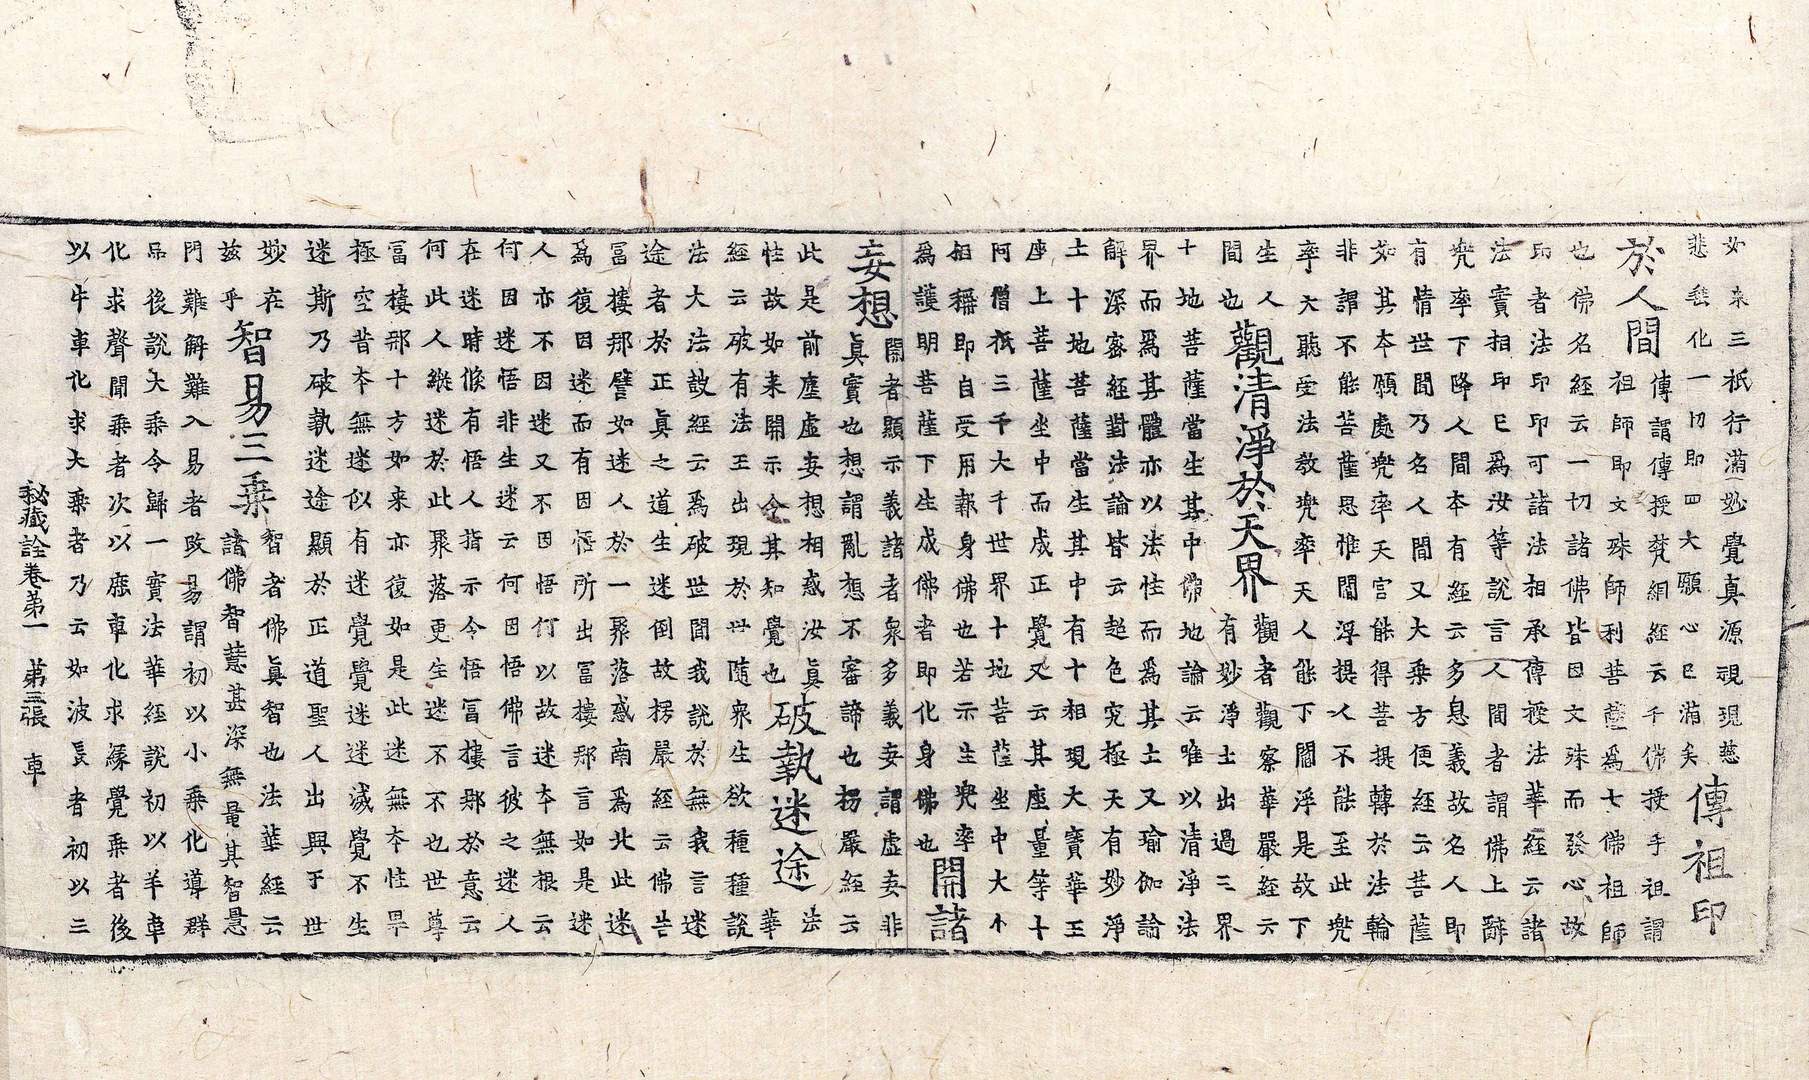 如来三祇行滿一妙覺真源視現慈
悲垂化一切即四大願心已滿矣
傳祖印
於人間
傳謂傳授梵網經云千佛授手祖謂
祖師即文殊師利菩薩爲七佛祖師
也佛名經云一切諸佛皆因文殊而發心故
印者法印印可諸法相承傳授法華經云諸
法實相印已爲汝等說言人間者謂佛上辭
兜率下降人間本有經云多息義故名人即
有情世間乃名人間又大乘方便經云菩薩
如其本願處兜率天宮能得菩提轉於法輪
非謂不能菩薩思惟閻浮提人不能至此兜
率天聽受法教兜率天人能下閻浮是故下
生人
間也
觀清淨於天界
觀者觀察華嚴經云
有妙淨土出過三界
十地菩薩當生其中佛地論云唯以清淨法
界而爲其體亦以法性而爲其土又瑜伽論
解深密經對法論皆云超色究極天有妙淨
土十地菩薩當生其中有十相現大寶華王
座上菩薩坐中而成正覺又云其座量等十
阿僧祇三千大千世界十地菩薩坐中大小
相稱即自受用報身佛也若示生兜率
爲護明菩薩下生成佛者即化身佛也
開諸
妄想
開者顯示義諸者衆多義妄謂虛妄非
眞實也想謂亂想不審諦也楞嚴經云
此是前塵虛妄想相惑汝眞
性故如来開示令其知覺也
破執迷途
法
華
經云破有法王出現於世隨衆生欲種種說
法大法故經云爲破世間我說於無我言迷
途者於正真之道生迷倒故楞嚴經云佛告
冨樓那譬如迷人於一聚落惑南爲北此迷
爲復因迷而有因悟所出冨樓那言如是迷
人亦不因迷又不因悟何以故迷本無根云
何因迷悟非生迷云何因悟佛言彼之迷人
在迷時倐有悟人指示令悟冨樓那於意云
何此人縱迷於此聚落更生迷不不也世尊
冨樓那十方如来亦復如是此迷無本性畢
極空昔本無迷似有迷覺覺迷迷滅覺不生
迷斯乃破執迷途顯於正道聖人出興于世
妙在
兹乎
智易三乘
智者佛眞智也法華經云
諸佛智慧甚深無量其智慧
門難解難入易者改易謂初以小乘化導群
品後說大乘令歸一實法華經說初以羊車
化求聲聞乘者次以鹿車化求緣覺乘者後
以牛車化求大乘者乃云如波長者初以三
秘藏詮卷第一 第三張 車